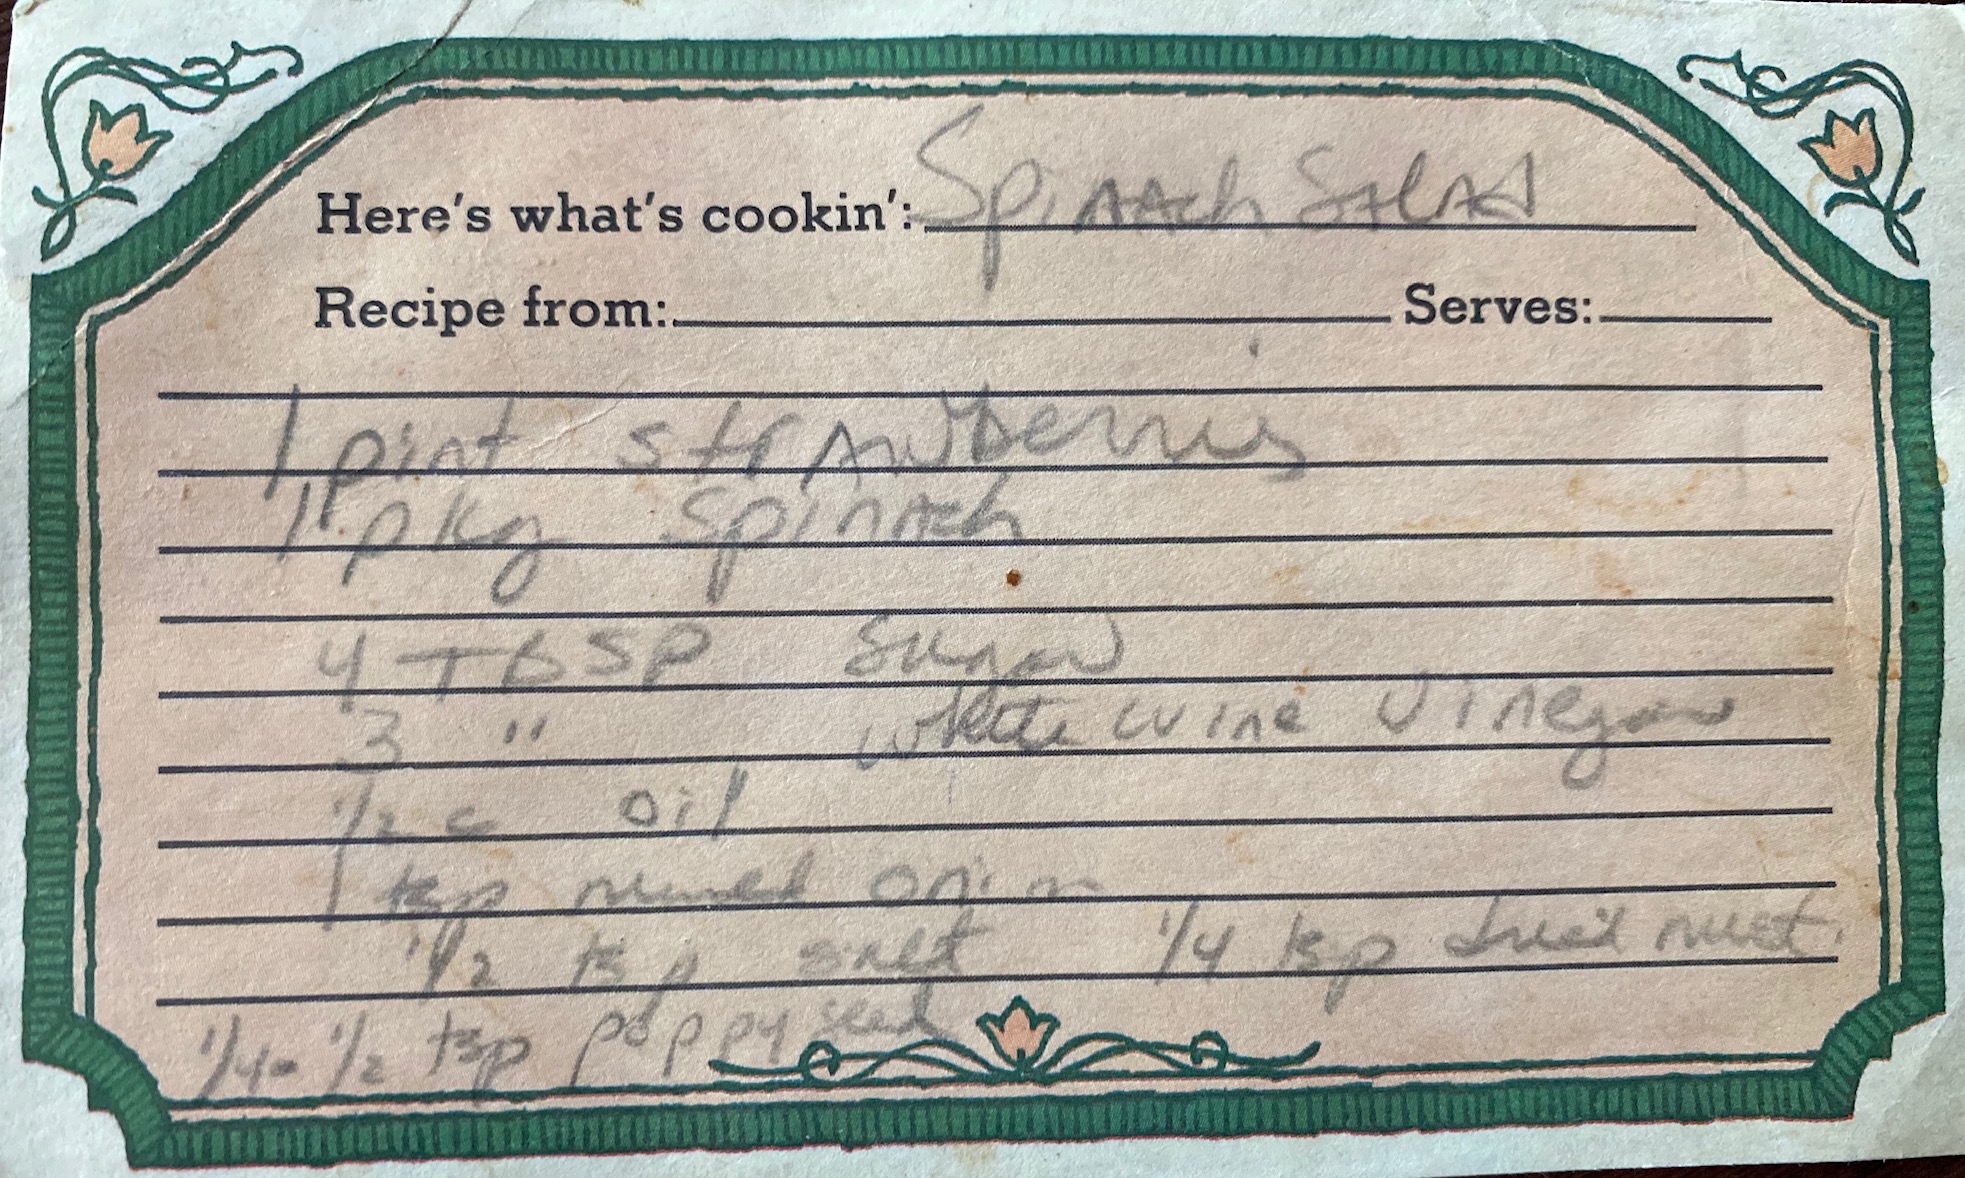 Here's what's cookin': Spinach Salad
Recipe from: Serves:
1 pint strawberries
1 pkg spinach
4 TBSP Sugar
3 " white wine vinegar
1/2 c oil
1 tsp minced onion
1/2 tsp salt 1/4 tsp dried must.
1/4 - 1/2 tsp poppy seed